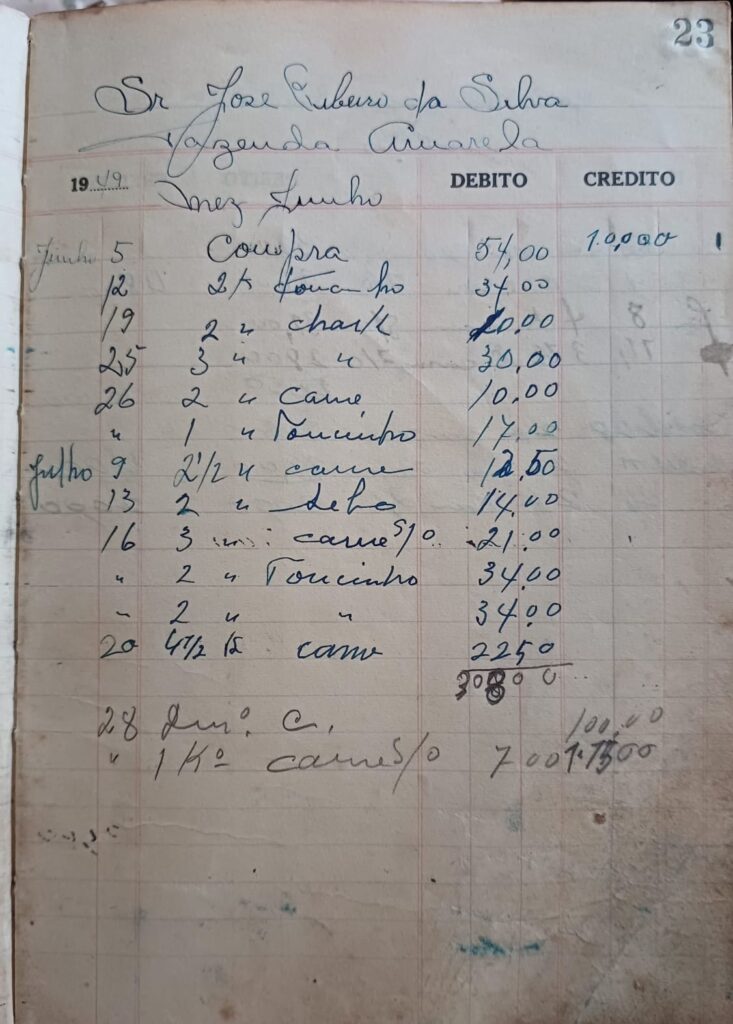 23
Sr Jose Ribeiro da Silva
Fazenda Amarela
1949 DEBITO CREDITO
mez Junho
Junho 5 Compra 54,00 10,000
12 2 K toucinho 34.00
19 2 " chark 20.00
25 3 " " 30,00
26 2 " Carne 10.00
" 1 " Toucinho 17.00
Julho 9 2 1/2 " carne 12.50
13 2 " sebo 14.00
16 3 " carne S/O 21.00
" 2 " Toucinho 34.00
" 2 " " 34.00
20 4 1/2 K carne 2250
308 00
28 Dinº. C. 100,00
" 1 Kº carne S/O 7 00